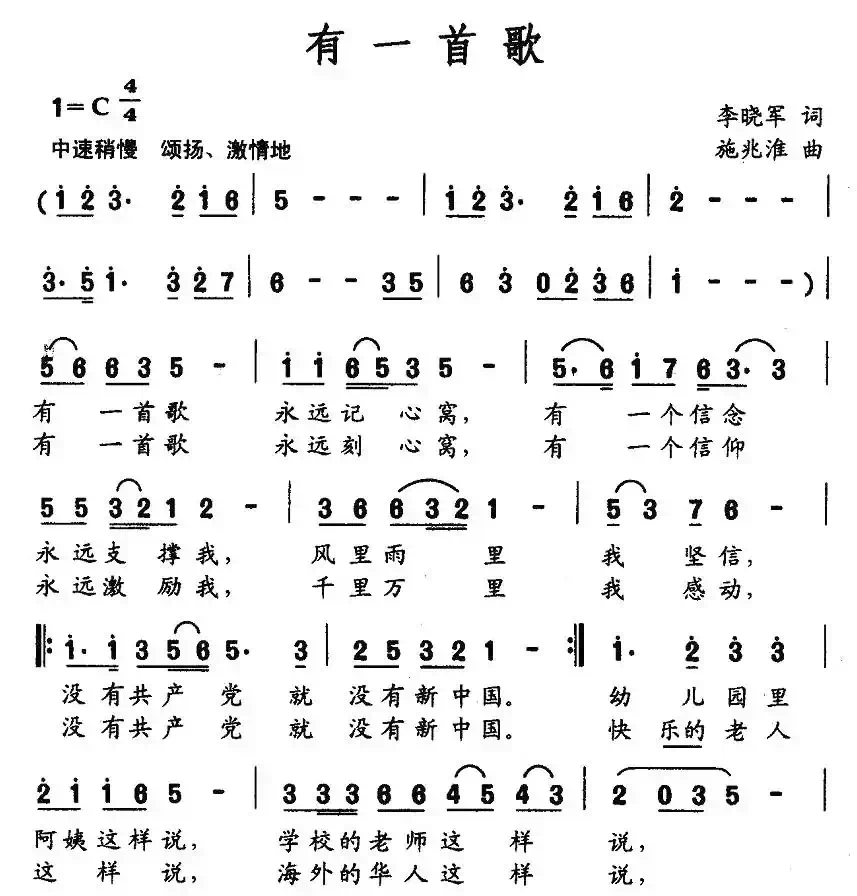 有一首歌
1=C 4/4
李晓军 词
中速稍慢 颂扬、激情地
施兆淮 曲
( 1 2 3· 2 1 6 | 5 - - - | 1 2 3· 2 1 6 | 2 - - - |
3· 5 1· 3 2 7 | 6 - - 3 5 | 6 3 0 2 3 6 | 1 - - - ) |
5 6 6 3 5 - | 1 1 6 5 3 5 - | 5· 6 1 7 6 3· 3 |
有 一首歌 永远记 心窝, 有 一个信念
有 一首歌 永远刻 心窝, 有 一个信仰
5 5 3 2 1 2 - | 3 6 6 3 2 1 - | 5 3 7 6 - |
永远支 撑我, 风里雨 里 我 坚信,
永远激 励我, 千里万 里 我 感动,
‖: 1· 1 3 5 6 5· 3 | 2 5 3 2 1 - :‖ 1· 2 3 3 |
没有共产 党 就 没有新中国。 幼 儿园里
没有共产 党 就 没有新中国。 快 乐的老人
2 1 1 6 5 - | 3 3 3 6 6 4 5 4 3 | 2 0 3 5 - |
阿姨这样说, 学校的老师这 样 说,
这 样 说, 海外的华人这 样 说,